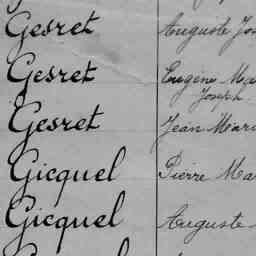 Gesret Auguste Jos
Gesret Eugène Mar
Joseph
Gesret Jean Mari
Gicquel Pierre Mar
Gicquel Auguste